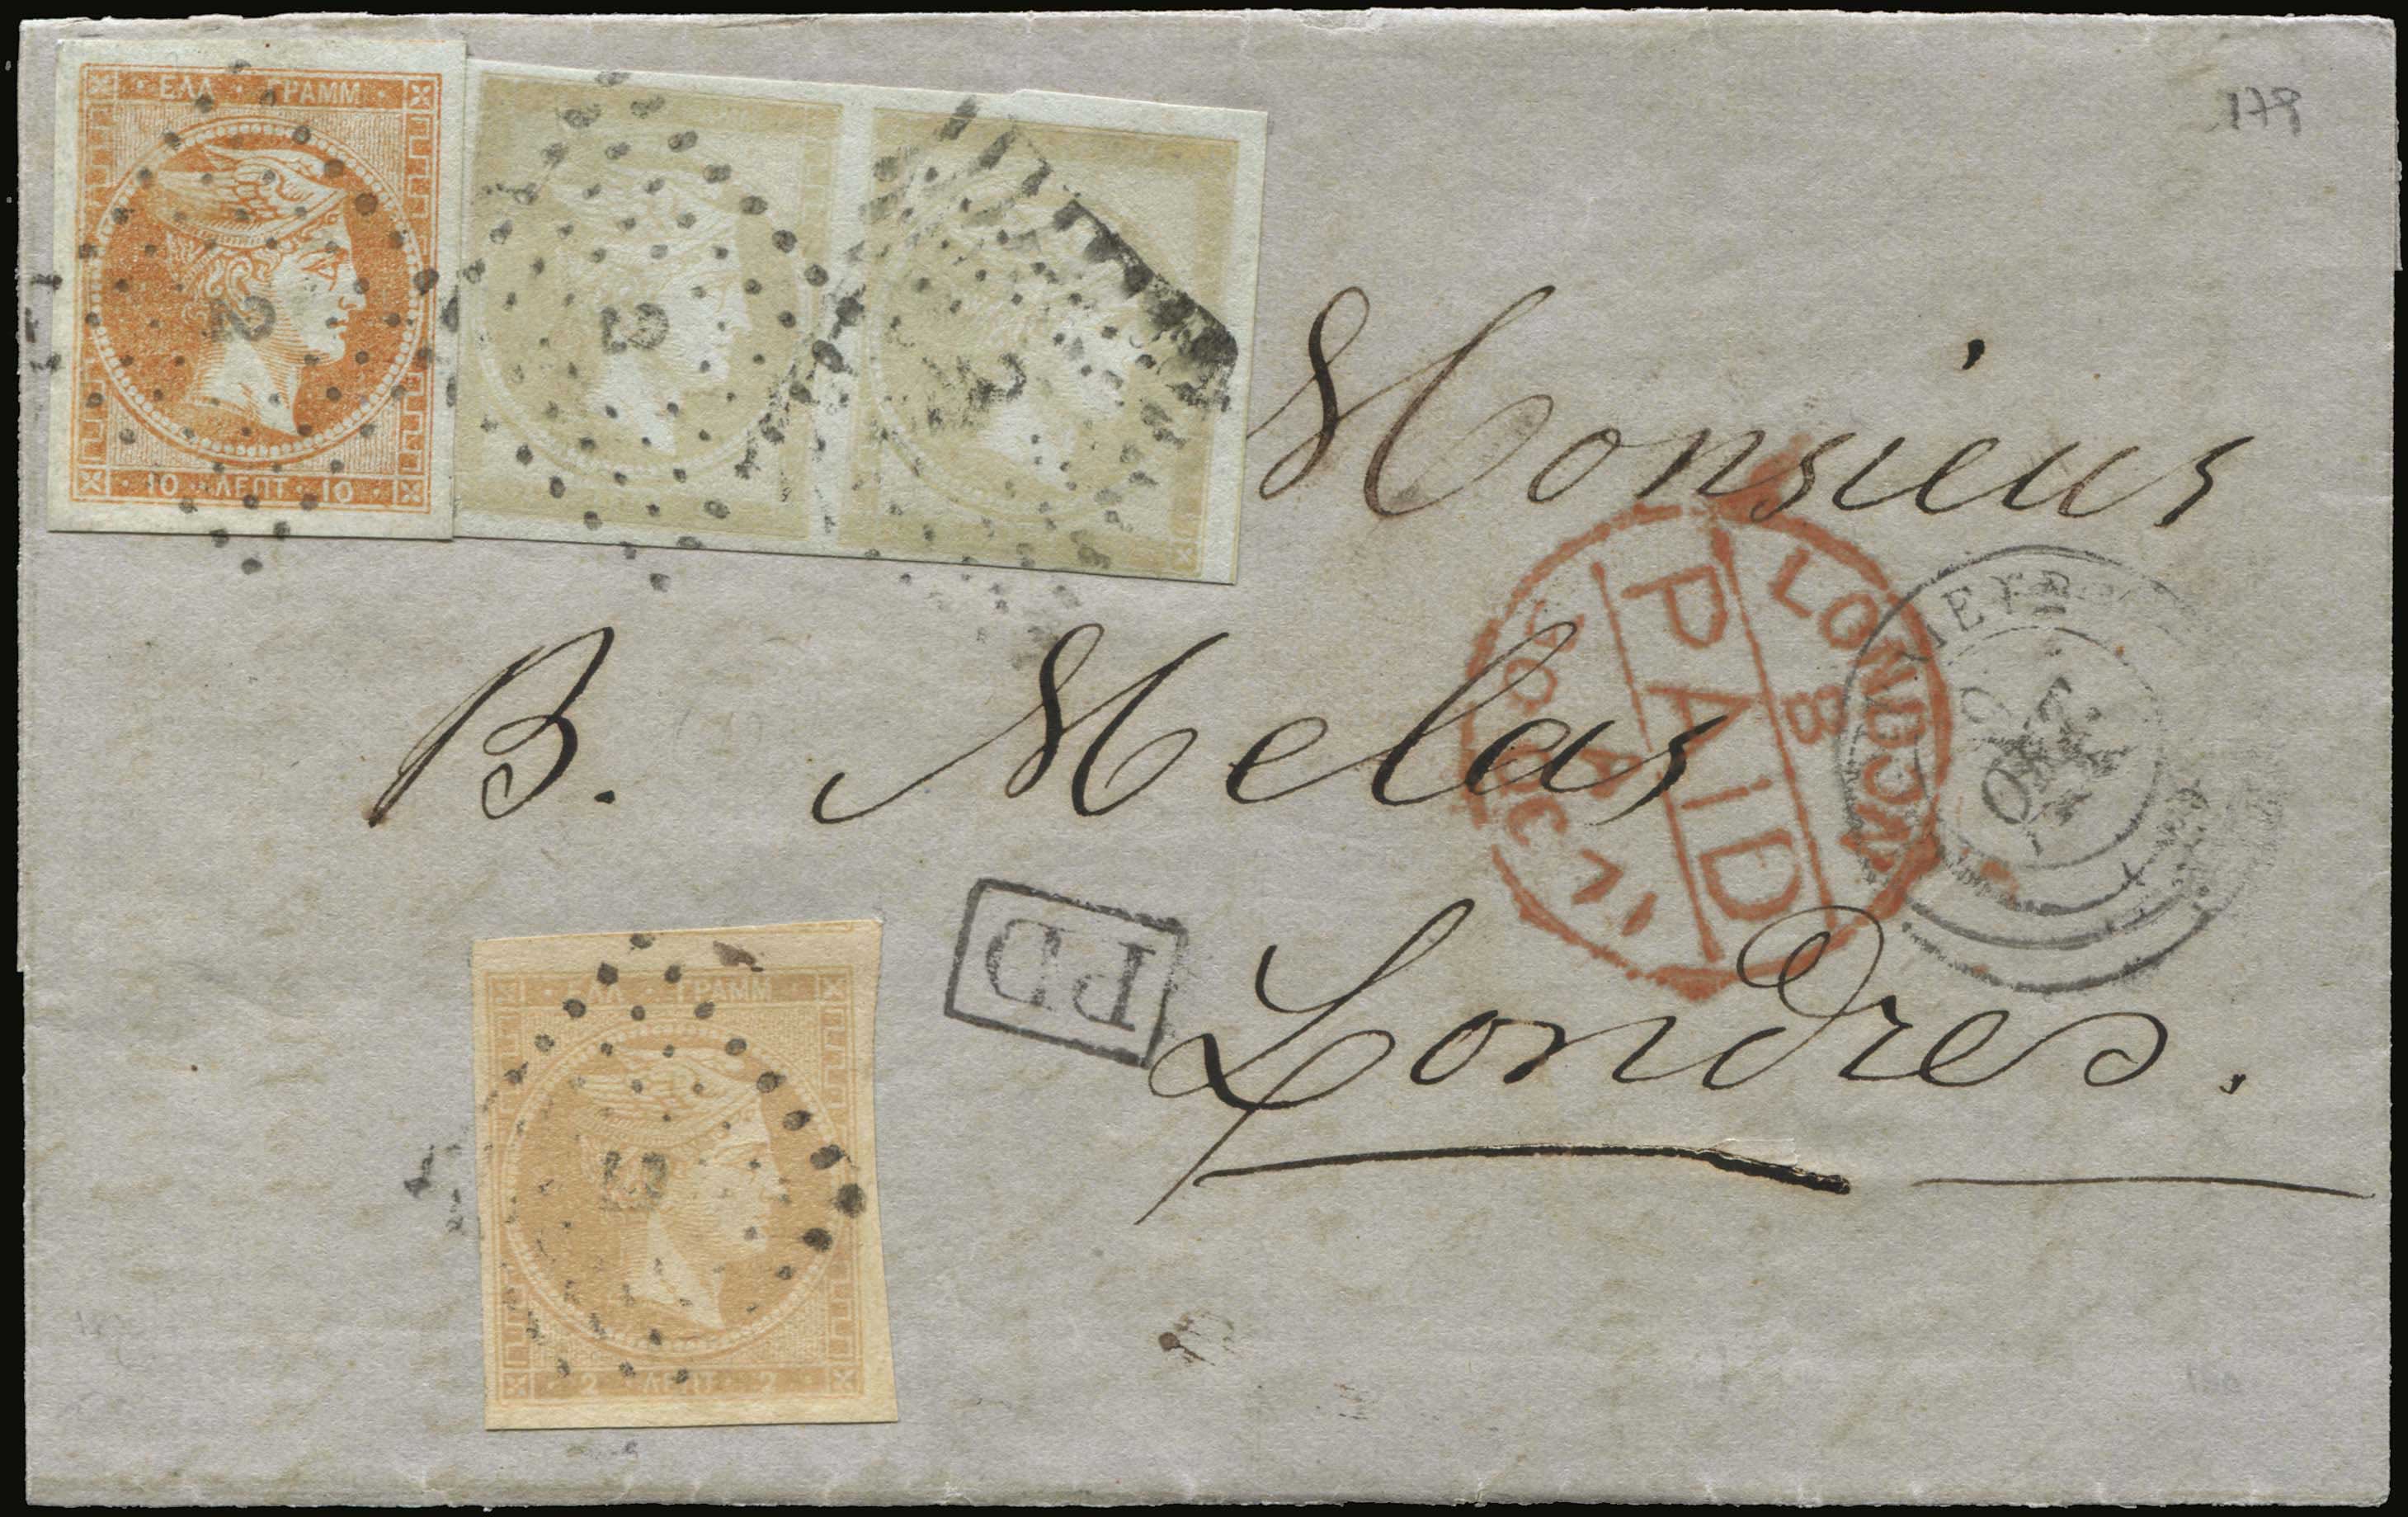 ΕΛΛ · ΓΡΑΜΜ
2
10 · ΛΕΠΤ · 10
2
2
178
Monsieur
B. Melas
Londres.
LONDON
8
PAID
30 DEC 71
PD
ΕΛΛ · ΓΡΑΜΜ
2
2 · ΛΕΠΤ · 2